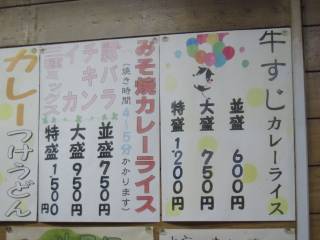 牛すじカレーライス
並盛 600円
大盛 750円
特盛 1200円
みそ焼カレーライス
(焼き時間4~5分かかります)
豚バラ
チキン
イカ
三種ミックス
並盛750円
大盛950円
特盛1500円
カレーつけうどん